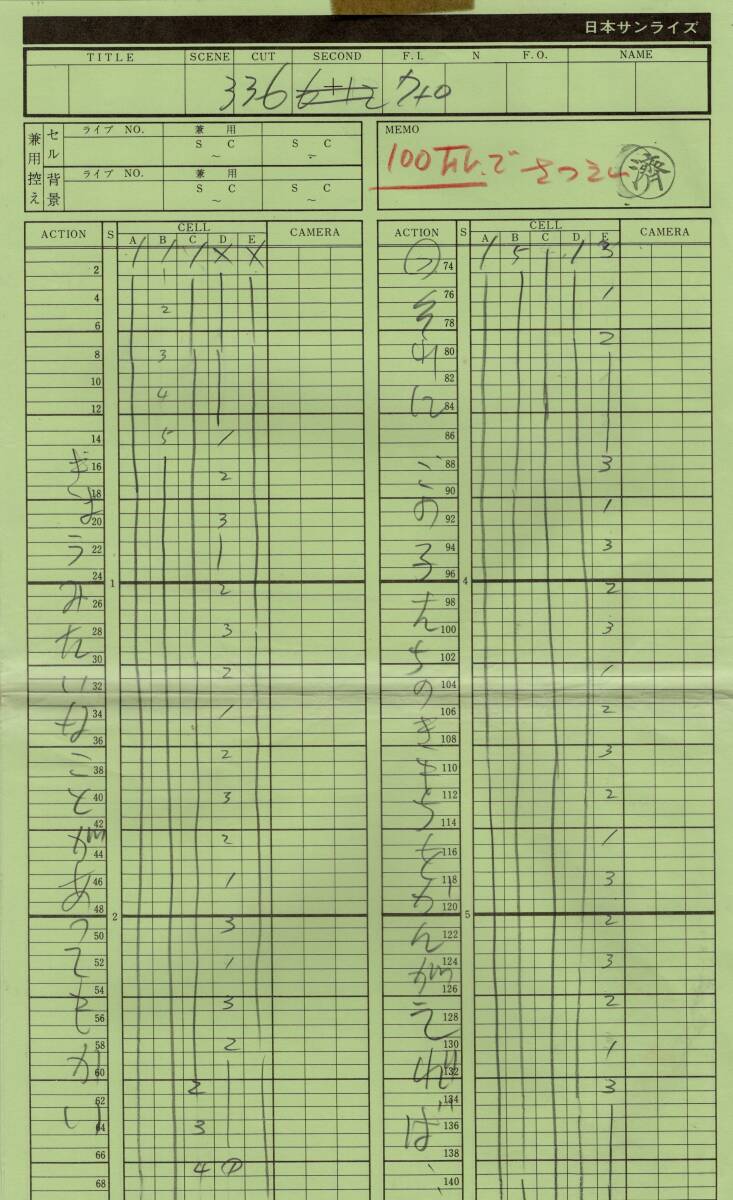 日本サンライズ
TITLE SCENE CUT SECOND F.I. N F.O. NAME
336 6+12 7+0
兼用控え セル ライブ NO. 兼用
S C S C
~ ~
背景 ライブ NO. 兼用
S C S C
~ ~
MEMO
100 で さつえい
済
ACTION S CELL CAMERA
A B C D E
1 1 1 X X
1
2
4 2
6
8 3
10 4
12
14 5 1
16 2
18
20 3
22
24 1 2
26
28 3
30 2
32
34 1
36
38 2
40 3
42
44 2
46 1
48 2
50 3
52 1
54
56 3
58 2
60
62 2
64 3
66 4 1
68
ぎゃうみたいなことがあってもかい
ACTION S CELL CAMERA
A B C D E
1 5 1 1 3
74
76 1
78
80 2
82
84
86
88 3
90
92 1
94 3
96 4
98 2
100 3
102
104 1
106 2
108
110 3
112 2
114
116 1
118 3
120 5
122 2
124 3
126
128 2
130 1
132
134 3
136
138
140
それに
このろんちのきもちをかんがえれば